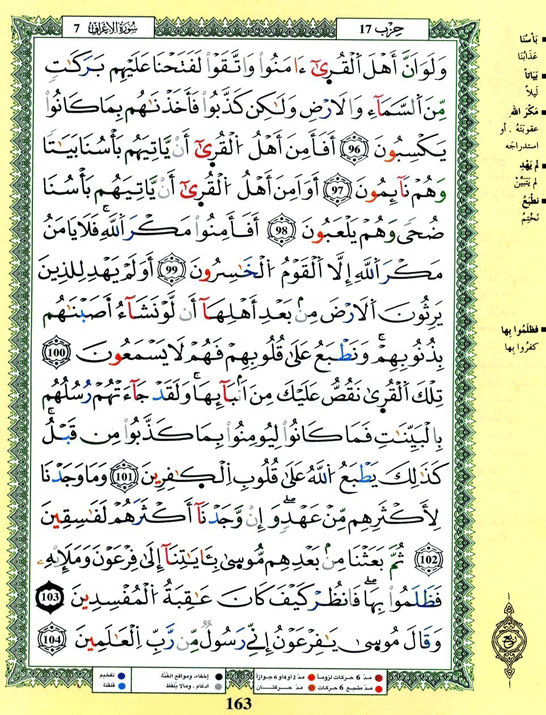 حِزْب 17
سُورَةُ الْأَعْرَافِ 7
وَلَوَ اَنَّ أَهْلَ اَلْقُر۪يٰٓ ءَامَنُواْ وَاتَّقَوْاْ لَفَتَحْنَا عَلَيْهِم بَرَكَٰتٖ
مِّنَ اَلسَّمَآءِ وَالَارْضِ وَلَٰكِن كَذَّبُواْ فَأَخَذْنَٰهُم بِمَا كَانُواْ
يَكْسِبُونَ 96 أَفَأَمِنَ أَهْلُ اُلْقُر۪يٰٓ أَنْ يَّاتِيَهُم بَأْسُنَا بَيَٰتاٗ
وَهُمْ نَآئِمُونَ 97 أَوَ اَمِنَ أَهْلُ اُلْقُر۪يٰٓ أَنْ يَّاتِيَهُم بَأْسُنَا
ضُحيٗ وَهُمْ يَلْعَبُونَ 98 أَفَأَمِنُواْ مَكْرَ اَللَّهِۖ فَلَا يَامَنُ
مَكْرَ اَللَّهِ إِلَّا اَلْقَوْمُ اُلْخَٰسِرُونَ 99 أَوَلَمْ يَهْدِ لِلذِينَ
يَرِثُونَ اَلَارْضَ مِنۢ بَعْدِ أَهْلِهَآ أَن لَّوْ نَشَآءُ اَ۬صَبْنَٰهُم
بِذُنُوبِهِمْۖ وَنَطْبَعُ عَلَىٰ قُلُوبِهِمْ فَهُمْ لَا يَسْمَعُونَ 100
تِلْكَ اَلْقُر۪يٰ نَقُصُّ عَلَيْكَ مِنَ اَنۢبَآئِهَاۖ وَلَقَدْ جَآءَتْهُمْ رُسُلُهُم
بِالْبَيِّنَٰتِ فَمَا كَانُواْ لِيُومِنُواْ بِمَا كَذَّبُواْ مِن قَبْلُۖ
كَذَٰلِكَ يَطْبَعُ اُللَّهُ عَلَىٰ قُلُوبِ اِلْكٰ۪فِرِينَ 101 وَمَا وَجَدْنَا
لِأَكْثَرِهِم مِّنْ عَهْدٖۖ وَإِنْ وَّجَدْنَآ أَكْثَرَهُمْ لَفَٰسِقِينَ
102 ثُمَّ بَعَثْنَا مِنۢ بَعْدِهِم مُّوس۪يٰ بِـَٔايَٰتِنَآ إِلَىٰ فِرْعَوْنَ وَمَلَإِيْهِۦ
فَظَلَمُواْ بِهَاۖ فَانظُرْ كَيْفَ كَانَ عَٰقِبَةُ اُلْمُفْسِدِينَ 103
وَقَالَ مُوس۪يٰ يَٰفِرْعَوْنُ إِنِّے رَسُولٞ مِّن رَّبِّ اِلْعَٰلَمِينَ 104
بَأْسُنَا
عَذَابُنَا
بَيَاتاً
لَيْلاً
مَكْرَ الله
عقوبَتَهُ . أو
استدراجَه
لَمْ يَهْدِ
لَمْ يَتَبَيَّنْ
نَطْبَعُ
نَخْتِمُ
فَظَلَمُوا بِها
كفَرُوا بِها
ربع
مدّ 6 حركات لزوماً مدّ 2 أو 4 أو 6 جوازاً إخفاء، ومواقع الغُنَّة تفخيم
مدّ مشبع 6 حركات مدّ حركتان ادغام، ومالا يُلفَظ قلقلة
163